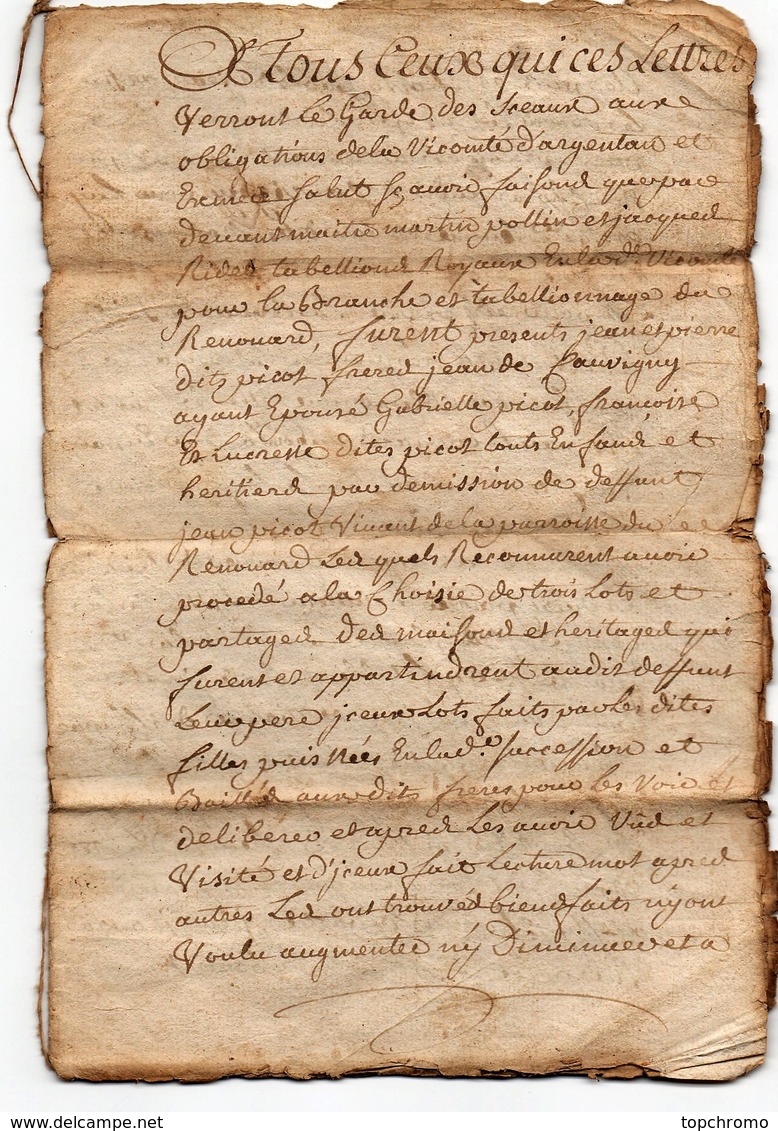 A Tous Ceux qui ces Lettres
Verront Le Garde des sceaux aux
obligations dela Vicomté d'argentan et
Exmes salut sçavoir faisons que par
devant maitre martin pollin et jacques
Rides tabellions Royaux En lad. Vicomté
pour la Branche et tabellionnage du
Renouard, furent presents jean et pierre
dits picot freres jean de Sauvigny
ayant Epousé Gabrielle picot, francoise
Et Lucresse dites picot touts Enfans et
heritiers par demission de deffunt
jean picot Vivant dela parroisse du
Renouard Les quels Reconnurent avoir
procedé a la Choisie de trois Lots et
partages des maisons et heritages qui
furent et appartindrent audit deffunt
Leur pere jceux Lots faits par Les dites
filles puis Nées En lad.e succession et
Baillés aux dits freres pour les Voir et
deliberer et apres Les avoir Vus et
Visité et d'jceux fait Lecture mot apres
autres Les ont trouvés biens faits n'y ont
Voulu augmenter n'y Diminuer et a
topchromo